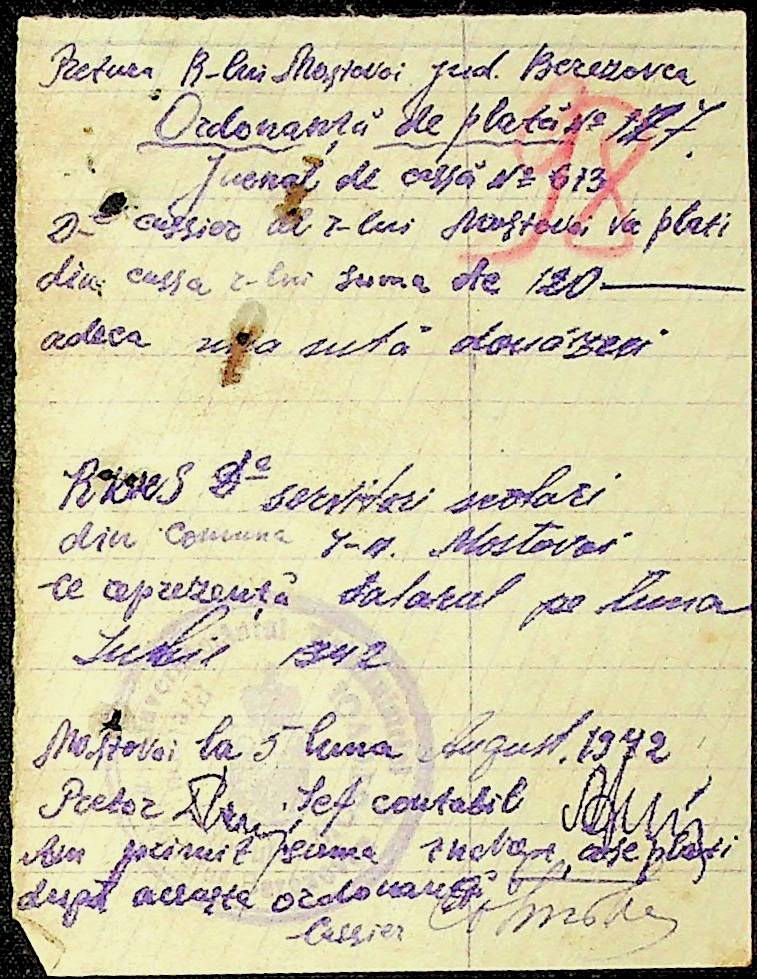 Pretura R-lui Moștovoi jud. Berezovca
Ordonanță de plată Nº 127
98
Jurnal de cassă Nº 613
Dˡ cassier al r-lui Moștovoi va plati
din cassa r-lui suma de 120
adeca una sută douăzeci
servitori scolari
din comuna r-n. Mostovoi
ce reprezență salarul pe luna
1942
Moștovoi la 5 luna August. 1942
Pretor Sef contabil
Am primit suma
după aceasta ordonanță
Cassier